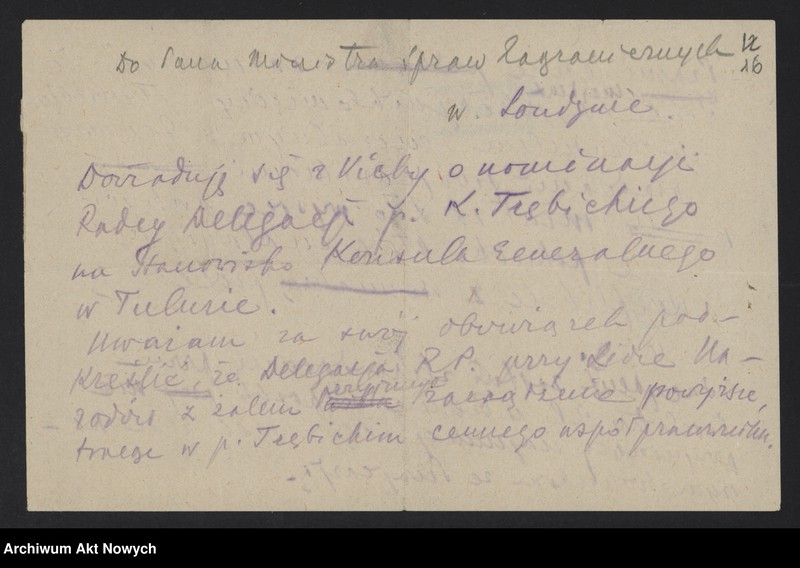 12
26
Do Pana Ministra Spraw Zagranicznych
w Londynie.
Dowiaduję się z Vichy o nominacji
Radcy Delegacji p. K. Trębickiego
na stanowisko Konsula Generalnego
w Tuluzie.
Uważam za swój obowiązek pod-
kreślić, że Delegacja R.P. przy Lidze Na-
rodów z żalem przyjmuje zarządzenie powyższe,
tracąc w p. Trębickim cennego współpracownika.
Archiwum Akt Nowych